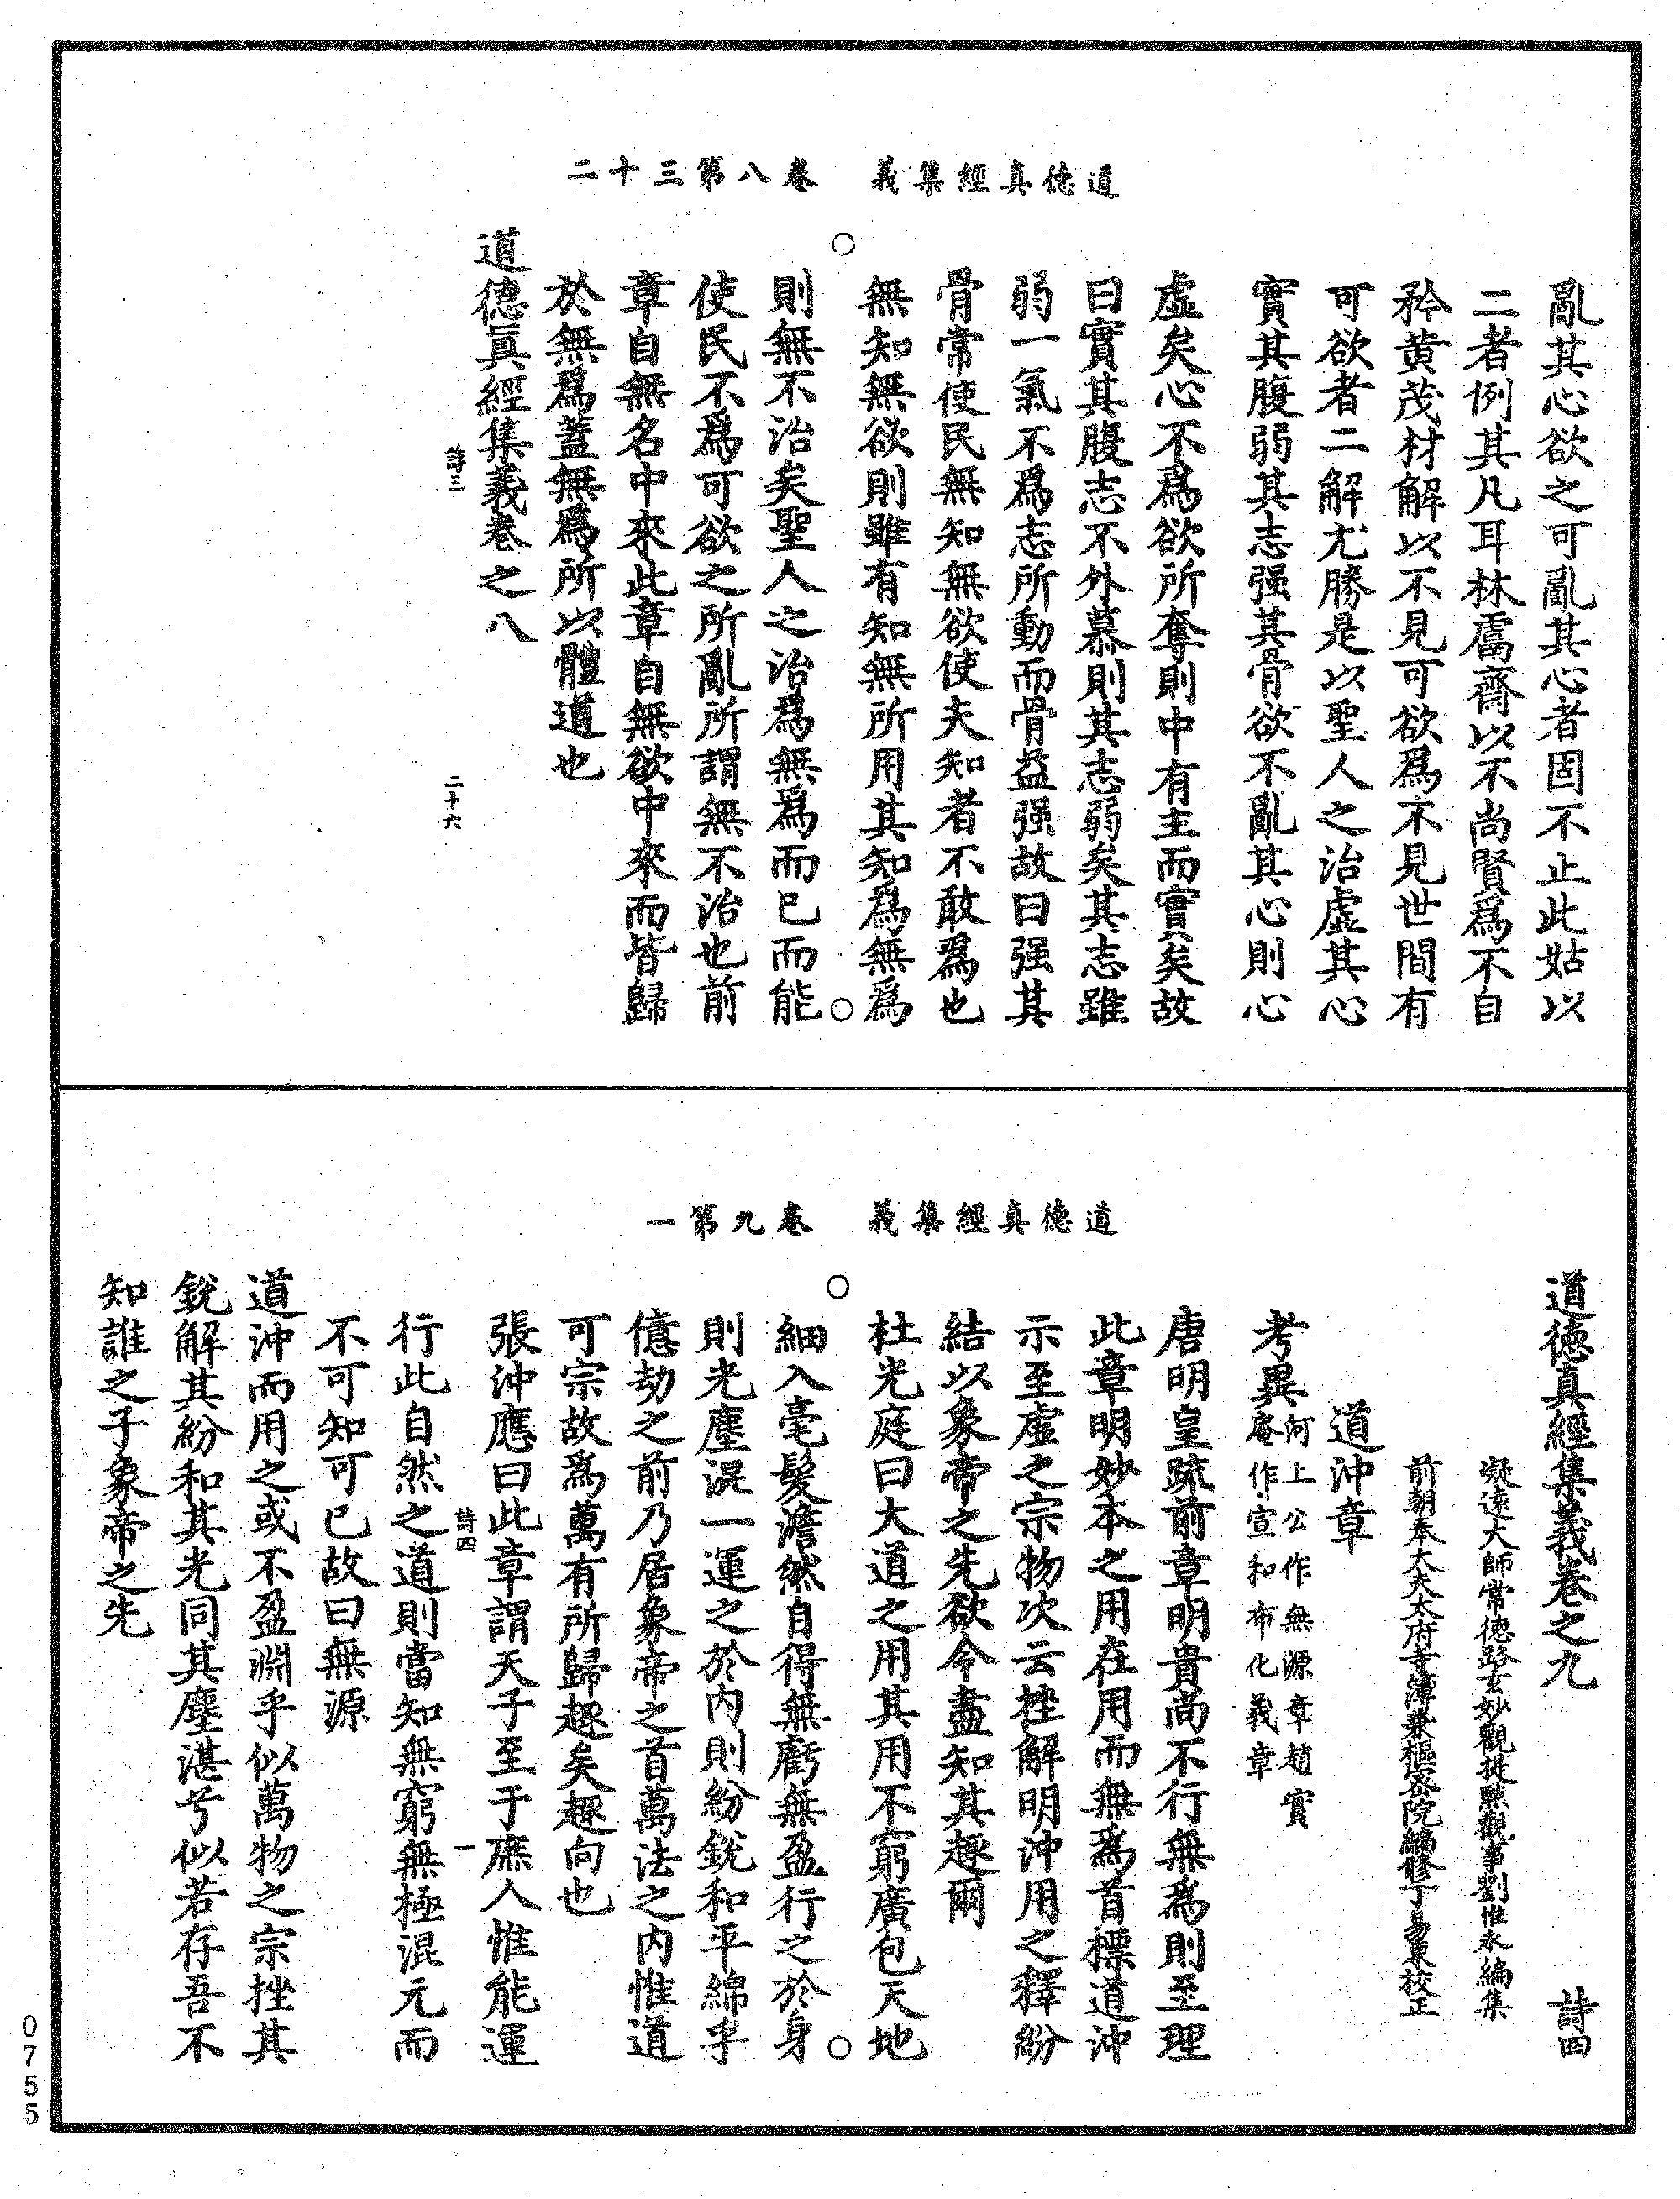 道德真經集義　卷八第三十二
亂其心欲之可亂其心者固不止此姑以
二者例其凡耳林鬳齋以不尚賢爲不自
矜黄茂材解以不見可欲爲不見世間有
可欲者二解尤勝是以聖人之治虚其心
實其腹弱其志强其骨欲不亂其心則心
虚矣心不爲欲所奪則中有主而實矣故
曰實其腹志不外慕則其志弱矣其志雖
弱一氣不爲志所動而骨益强故曰强其
骨常使民無知無欲使夫知者不敢爲也
無知無欲則雖有知無所用其知爲無爲
則無不治矣聖人之治爲無爲而已而能
使民不爲可欲之所亂所謂無不治也前
章自無名中來此章自無欲中來而皆歸
於無爲蓋無爲所以體道也
道德眞經集義卷之八
詩三　二十六
道德真經集義　卷九第一
道德真經集義卷之九　詩四
凝遠大師常德路玄妙觀提點觀事劉惟永編集
前朝奉大夫太府寺簿兼樞密院編修丁易東校正
道沖章
考異河上公作無源章趙實
庵作宣和布化義章
唐明皇疏前章明貴尚不行無爲則至理
此章明妙本之用在用而無爲首標道沖
示至虚之宗物次云挫解明沖用之釋紛
結以象帝之先欲令盡知其趣爾
杜光庭曰大道之用其用不窮廣包天地
細入毫髮澹然自得無虧無盈行之於身
則光塵混一運之於内則紛銳和平綿乎
億劫之前乃居象帝之首萬法之内惟道
可宗故爲萬有所歸趣矣趣向也
張沖應曰此章謂天子至于庶人惟能運
詩四　一
行此自然之道則當知無窮無極混元而
不可知可已故曰無源
道沖而用之或不盈淵乎似萬物之宗挫其
銳解其紛和其光同其塵湛兮似若存吾不
知誰之子象帝之先
0755